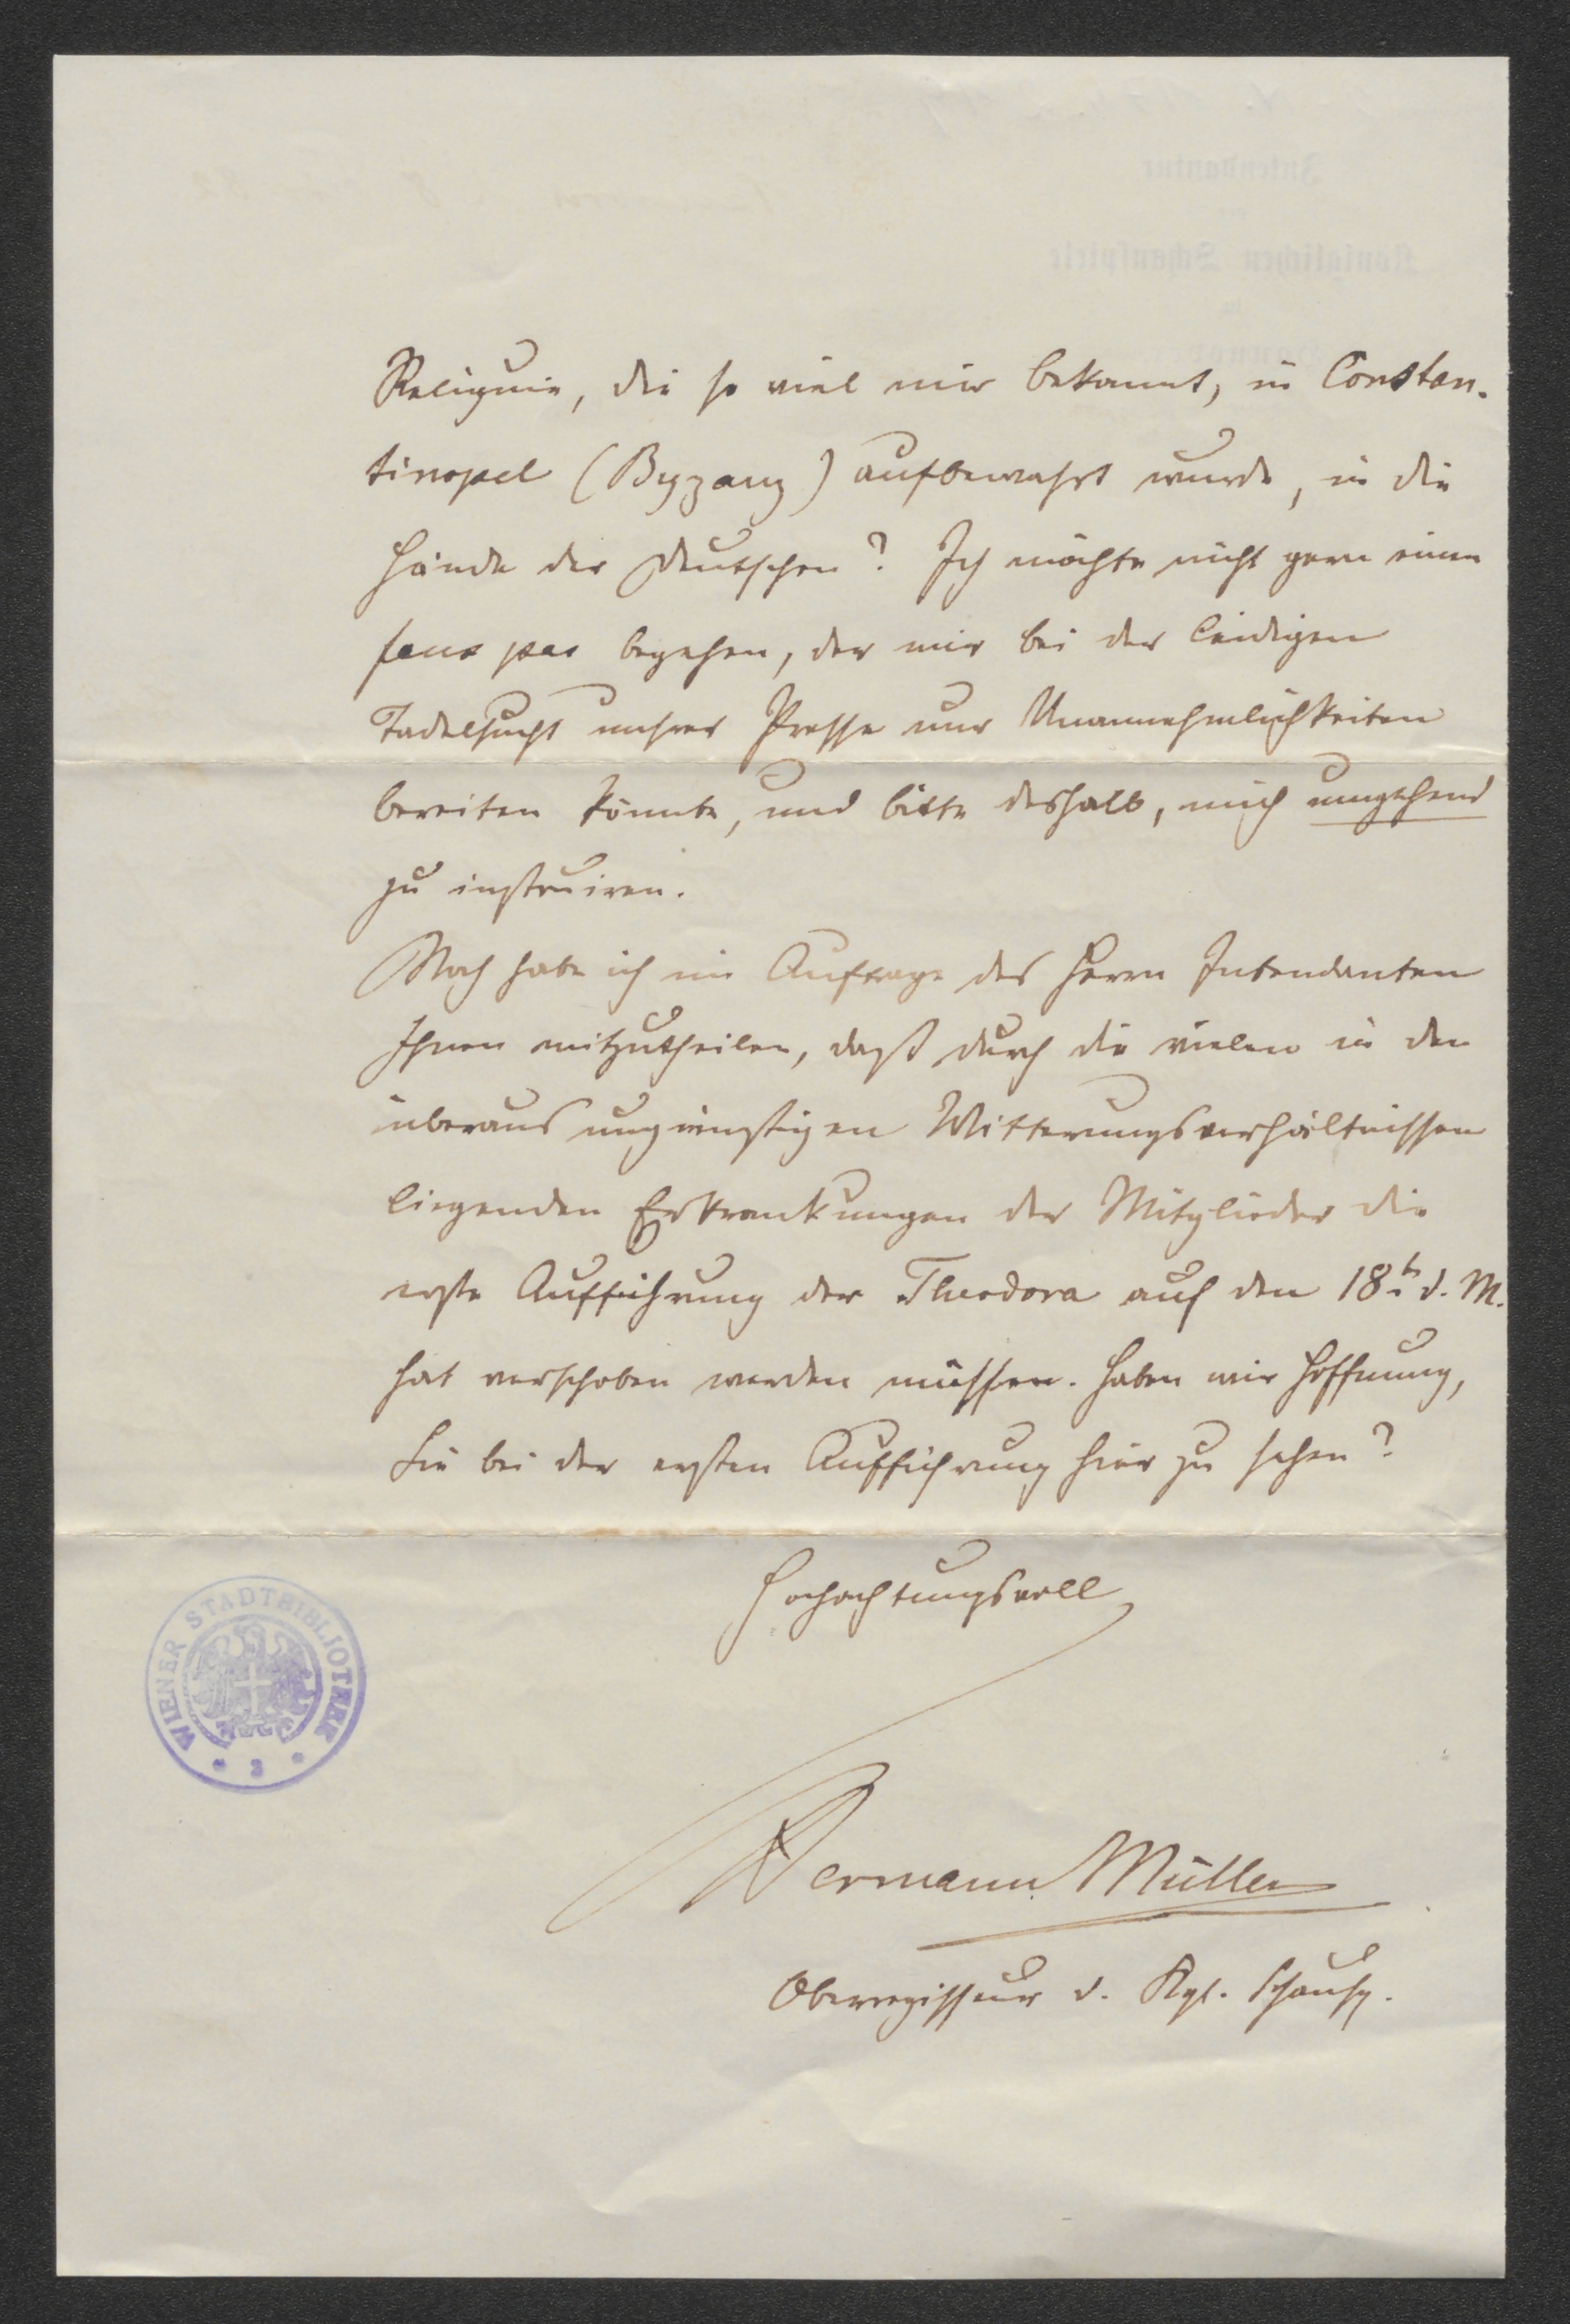 Reliquie, die so viel mir bekannt, in Constan-
tinopel (Byzanz) aufbewahrt wurde, in die
Hände der Deutschen? Ich möchte nicht gern einen
faux pas begehen, der mir bei der leidigen
Tadelsucht unsrer Presse nur Unannehmlichkeiten
bereiten könnte, und bitte deshalb, mich umgehend
zu instruiren.
Noch habe ich im Auftrage des Herrn Intendanten
Ihnen mitzutheilen, daß durch die vielen in den
überaus ungünstigen Witterungsverhältnissen
liegenden Erkrankungen der Mitglieder die
erste Aufführung der Theodora auf den 18t. d. M.
hat verschoben werden müssen. Haben wir Hoffnung,
Sie bei der ersten Aufführung hier zu sehen?
Hochachtungsvoll
Hermann Müller
Oberregisseur d. Kgl. Schausp.
WIENER STADTBIBLIOTHEK